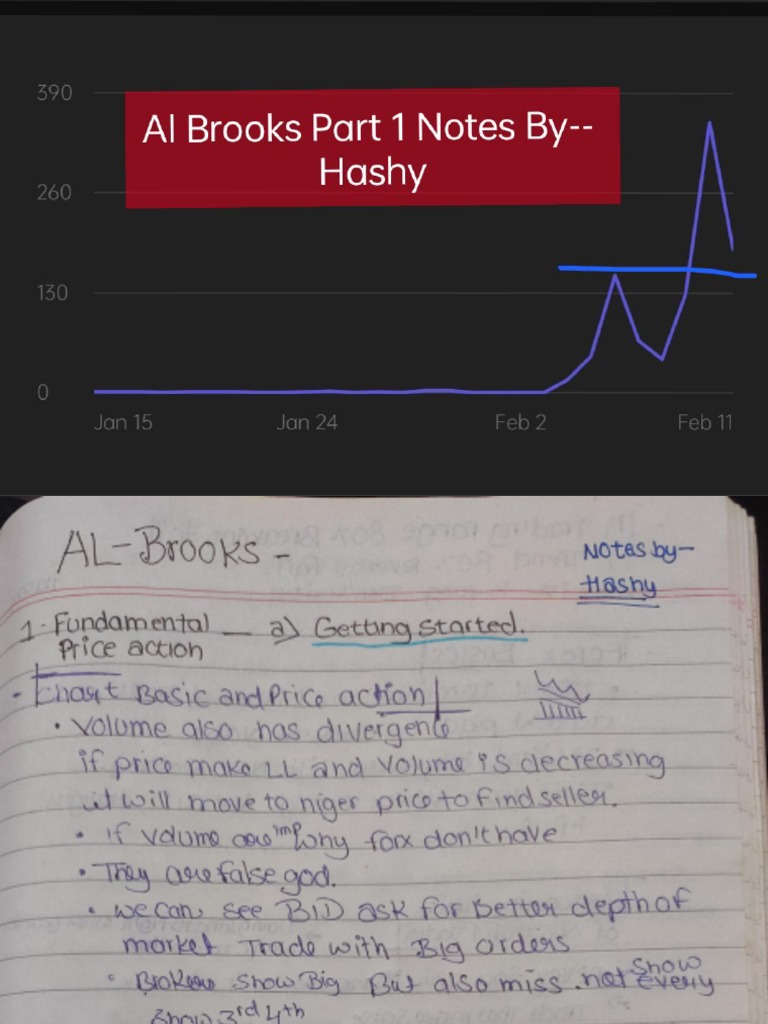 390
Al Brooks Part 1 Notes By--
Hashy
260
130
0
Jan 15 Jan 24 Feb 2 Feb 11
AL-Brooks -
Notes by-
Hashy
1. Fundamental — a) Getting Started.
Price action
- Chart Basic and Price action
• Volume also has divergence
if price make LL and Volume is decreasing
it will move to higer price to find seller.
• if volume are imp why forx don't have
• They are false god.
• we can see BID ask for Better depth of
market Trade with Big orders
• Show Big But also miss. not show every
show 3rd 4th